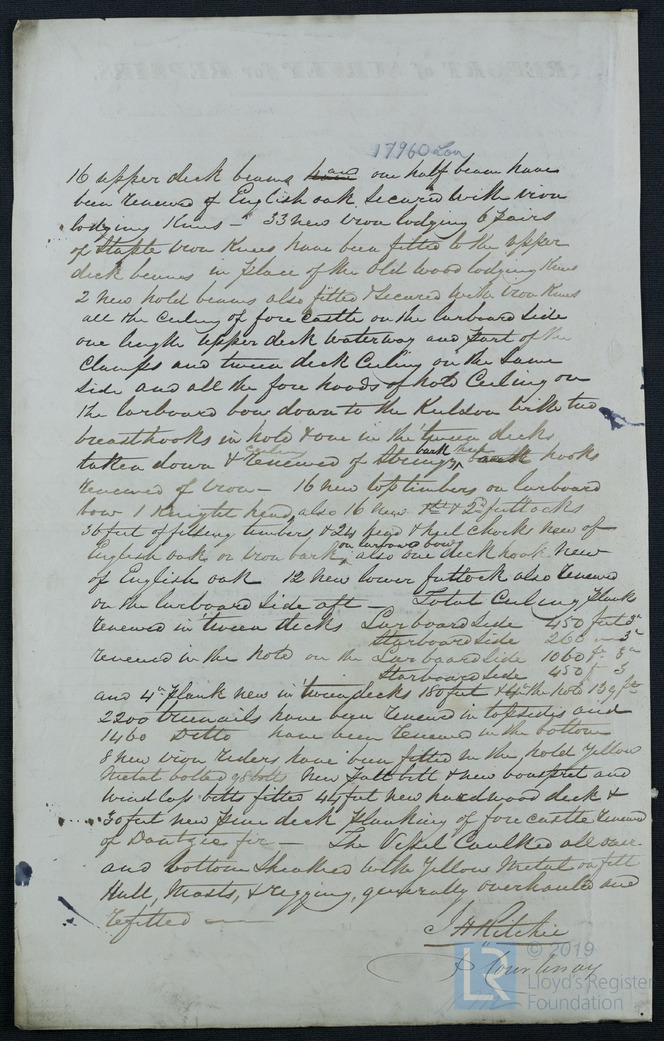 REPORT of SURVEY for REPAIRS,
17960 Lon
16 upper deck beams have and one half beam have
been renewed of English oak secured with iron
lodging Knees - 33 new iron lodging 6 pairs
of Staple iron Knees have been fitted to the upper
deck beams in place of the old wood lodging Knees
2 new hold beams also fitted & Secured with iron Knees
all the Ceiling of fore castle on the larboard Side
one length upper deck waterway and part of the
Clamps and tween deck Ceiling on the Same
Side and all the fore hoods of hold Ceiling on
the larboard bow down to the Kelson with two
breasthooks in hold & one in the tween decks
taken down & renewed of Stringy bark hooks
renewed of iron - 16 new toptimbers on larboard
bow 1 Knight head, also 16 new & 2d futtocks
30 feet of filling timbers & 24 head & heel chocks new of
English oak or Iron bark, on larboard bow also one deck hook new
of English oak 12 new lower futtock also renewed
on the larboard Side aft - Total Ceiling Plank
renewed in tween decks Larboard Side 450 feet 3"
Starboard Side 260 3"
renewed in the hold on the Larboard Side 1060 ft 3"
Starboard Side 450 ft 3
and 4" Plank new in tween decks 180 feet & 4" the hold 139 ft
2200 treenails have been renewed in topsides and
1460 Ditto have been renewed in the bottom
8 new iron riders have been fitted in the hold Yellow
Metal bolted 98 bolts New pall bitt & new bowsprit and
windlass bitts fitted 44 feet new hardwood deck &
30 feet new pine deck Planking of fore castle renewed
of Dantzic fir - The Vessel Caulked all over
and bottom Sheathed with Yellow Metal on felt
Hull, Masts, & rigging, generally overhauled and
refitted
J H Ritchie
P Courtenay
© 2019
LR
Lloyd's Register
Foundation